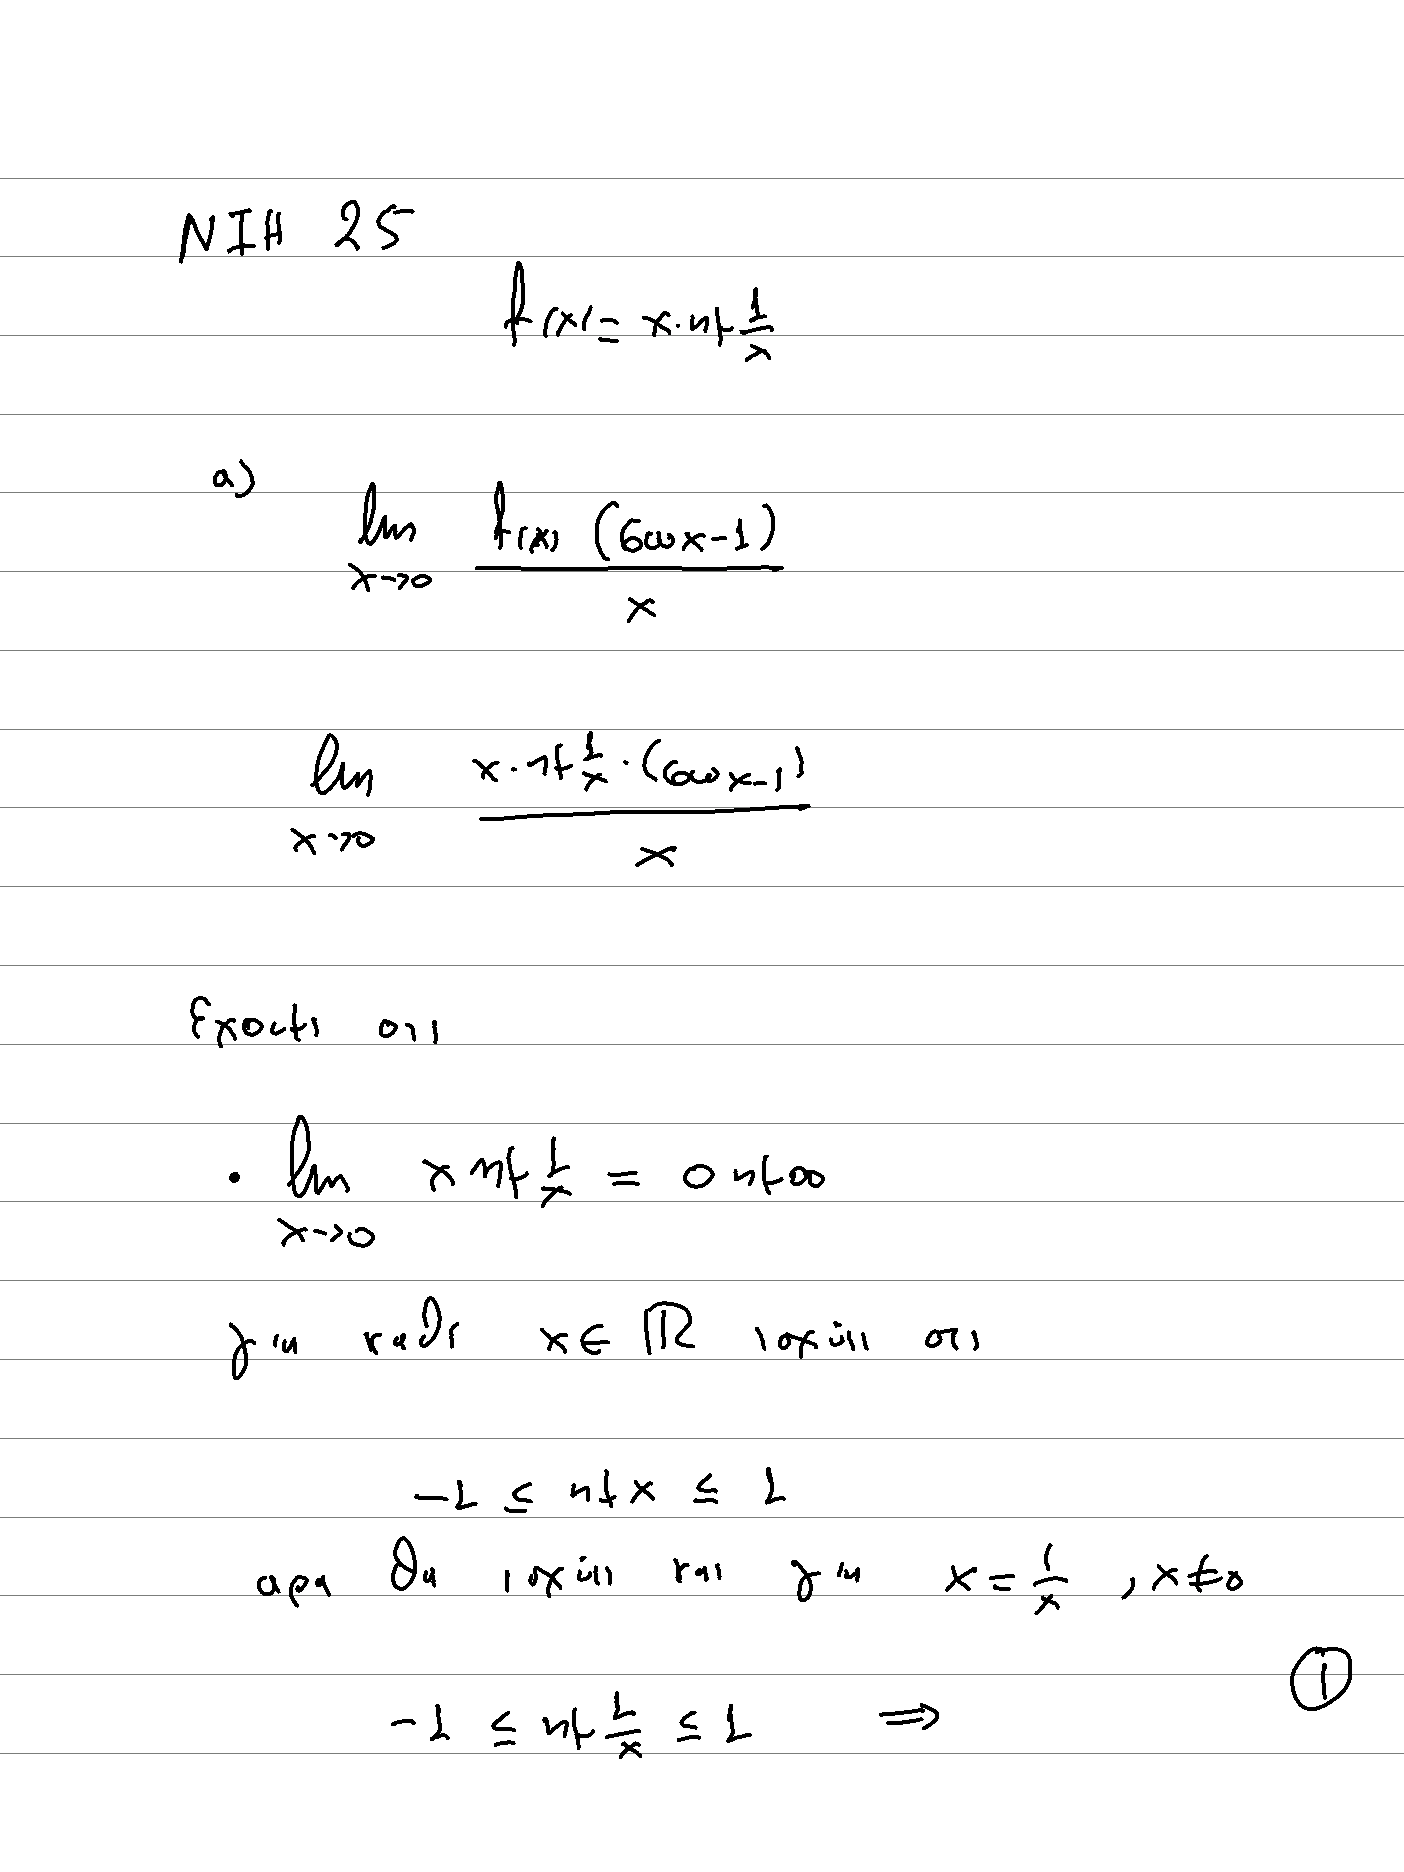 ΝΙΗ 25
f(x) = x·ημ 1/x
α)
lim x→0 f(x) (συνx-1) / x
lim x→0 x·ημ 1/x · (συνx-1) / x
Εχουμε οτι
• lim x→0 x ημ 1/x = 0 ημ∞
για καθε x ∈ ℝ ισχυει οτι
-1 ≤ ημx ≤ 1
αρα θα ισχυει και για x = 1/x , x≠0
-1 ≤ ημ 1/x ≤ 1 ⇒
①